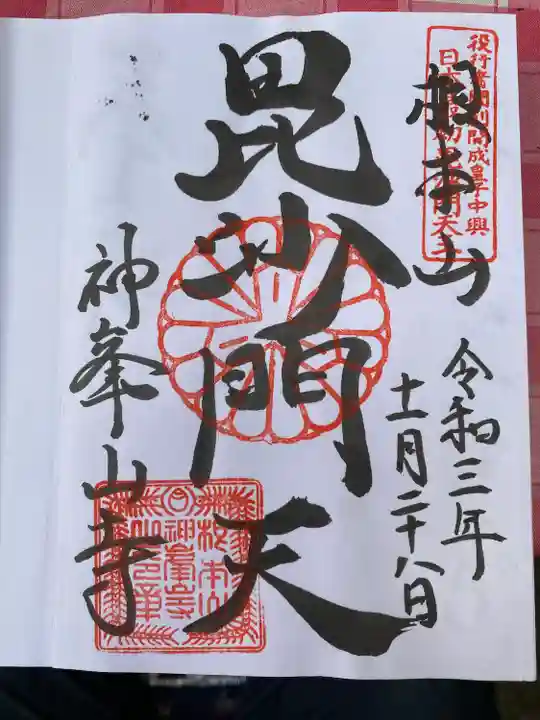 役行者開創開成皇子中興
日本最初毘沙門天王
根本山
令和三年
十一月二十八日
毘沙門天
神峯山寺